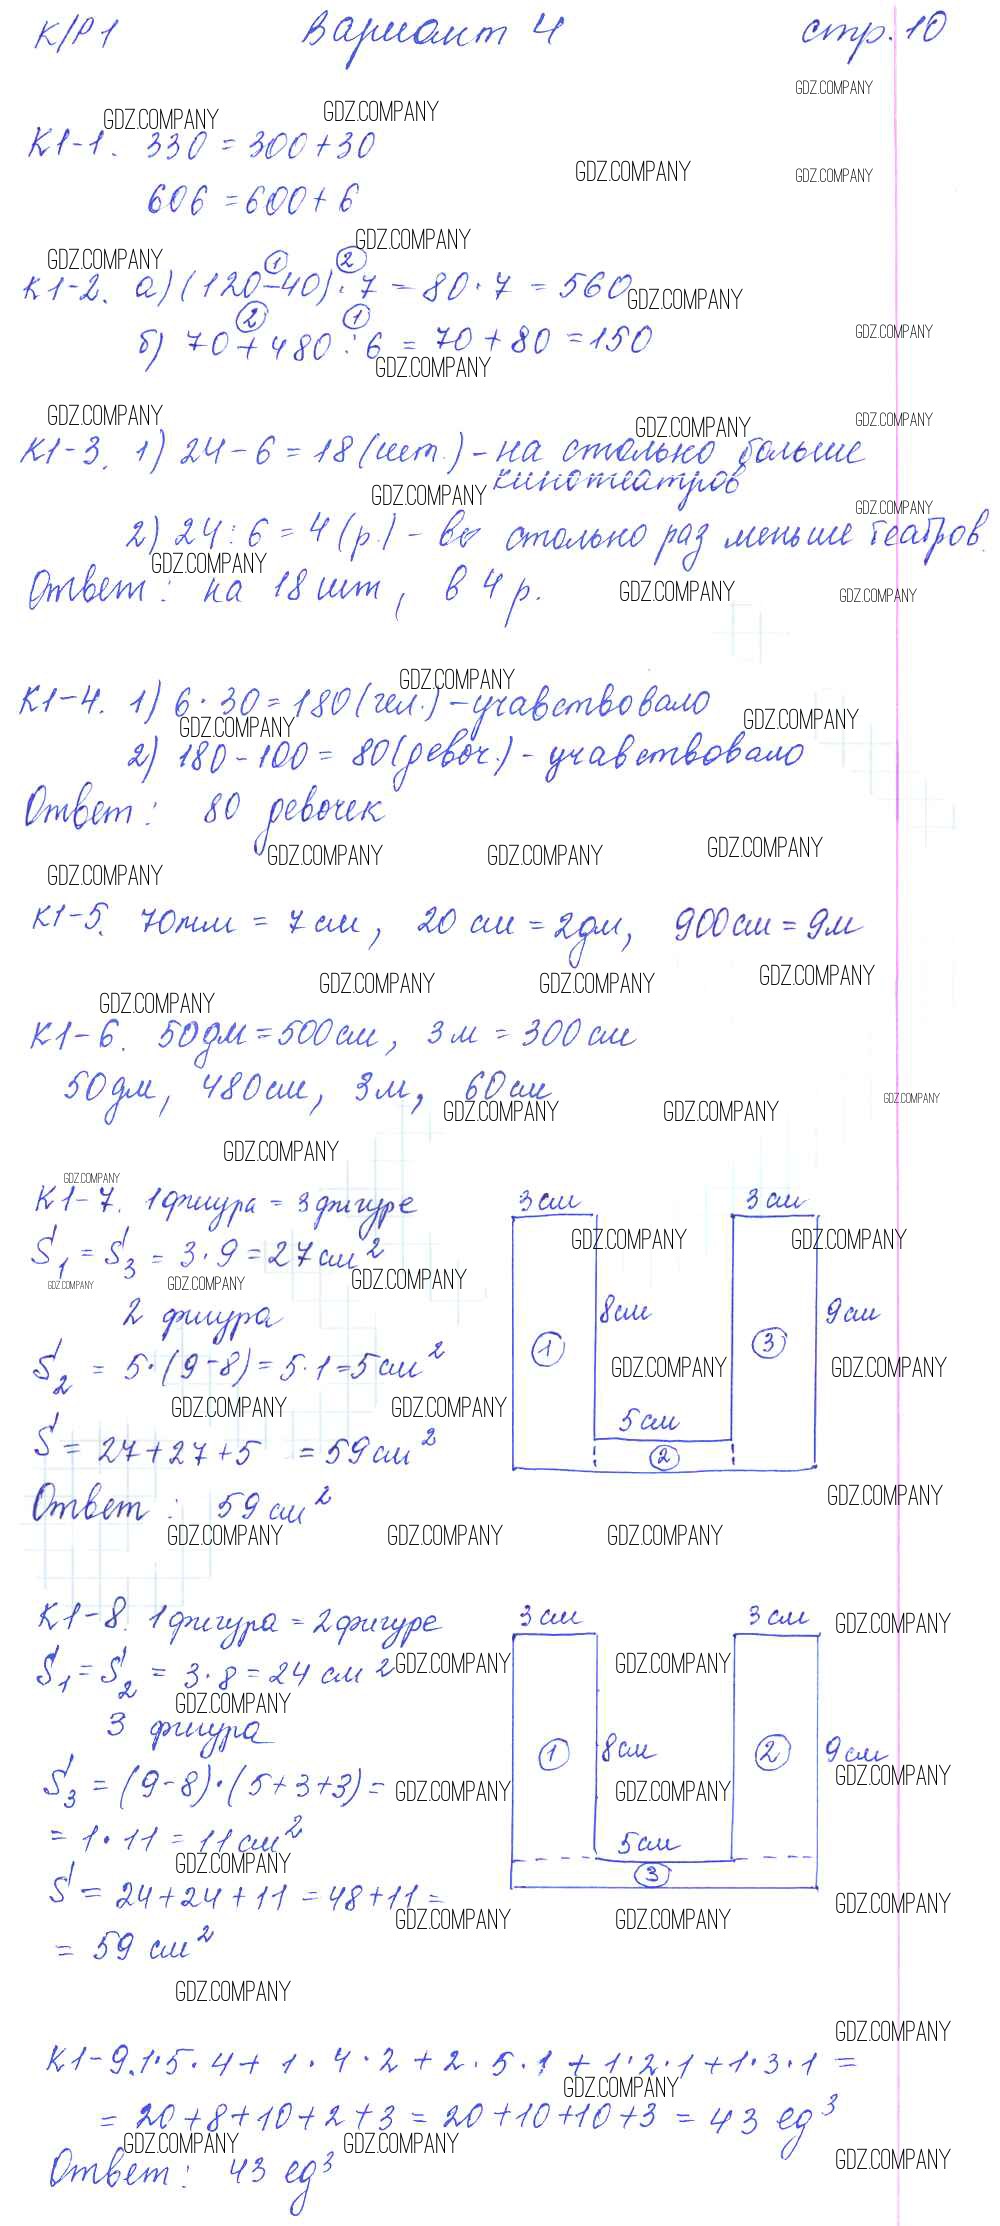 К/Р1 Вариант 4 стр. 10
К1-1. 330 = 300+30
606 = 600+6
К1-2. а) (120-40)·7 = 80·7 = 560
① ②
б) 70+480:6 = 70+80 = 150
② ①
К1-3. 1) 24-6 = 18 (шт.) - на столько больше
кинотеатров
2) 24:6 = 4 (р.) - во столько раз меньше театров.
Ответ: на 18 шт, в 4 р.
К1-4. 1) 6·30 = 180 (чел.) - учавствовало
2) 180-100 = 80 (девоч.) - учавствовало
Ответ: 80 девочек
К1-5. 70мм = 7см, 20 см = 2дм, 900см = 9м
К1-6. 50дм = 500см, 3м = 300см
50дм, 480см, 3м, 60см
К1-7. 1 фигура = 3 фигуре
S₁ = S₃ = 3·9 = 27 см²
2 фигура
S₂ = 5·(9-8) = 5·1 = 5 см²
S = 27+27+5 = 59 см²
Ответ: 59 см²
3 см 3 см
8 см 9 см
① ③
5 см
②
К1-8. 1 фигура = 2 фигуре
S₁ = S₂ = 3·8 = 24 см²
3 фигура
S₃ = (9-8)·(5+3+3) =
= 1·11 = 11 см²
S = 24+24+11 = 48+11 =
= 59 см²
3 см 3 см
① 8 см ② 9 см
5 см
③
К1-9. 1·5·4 + 1·4·2 + 2·5·1 + 1·2·1 + 1·3·1 =
= 20+8+10+2+3 = 20+10+10+3 = 43 ед³
Ответ: 43 ед³
GDZ.COMPANY